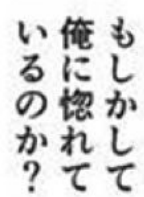 もしかして
俺に惚れて
いるのか?